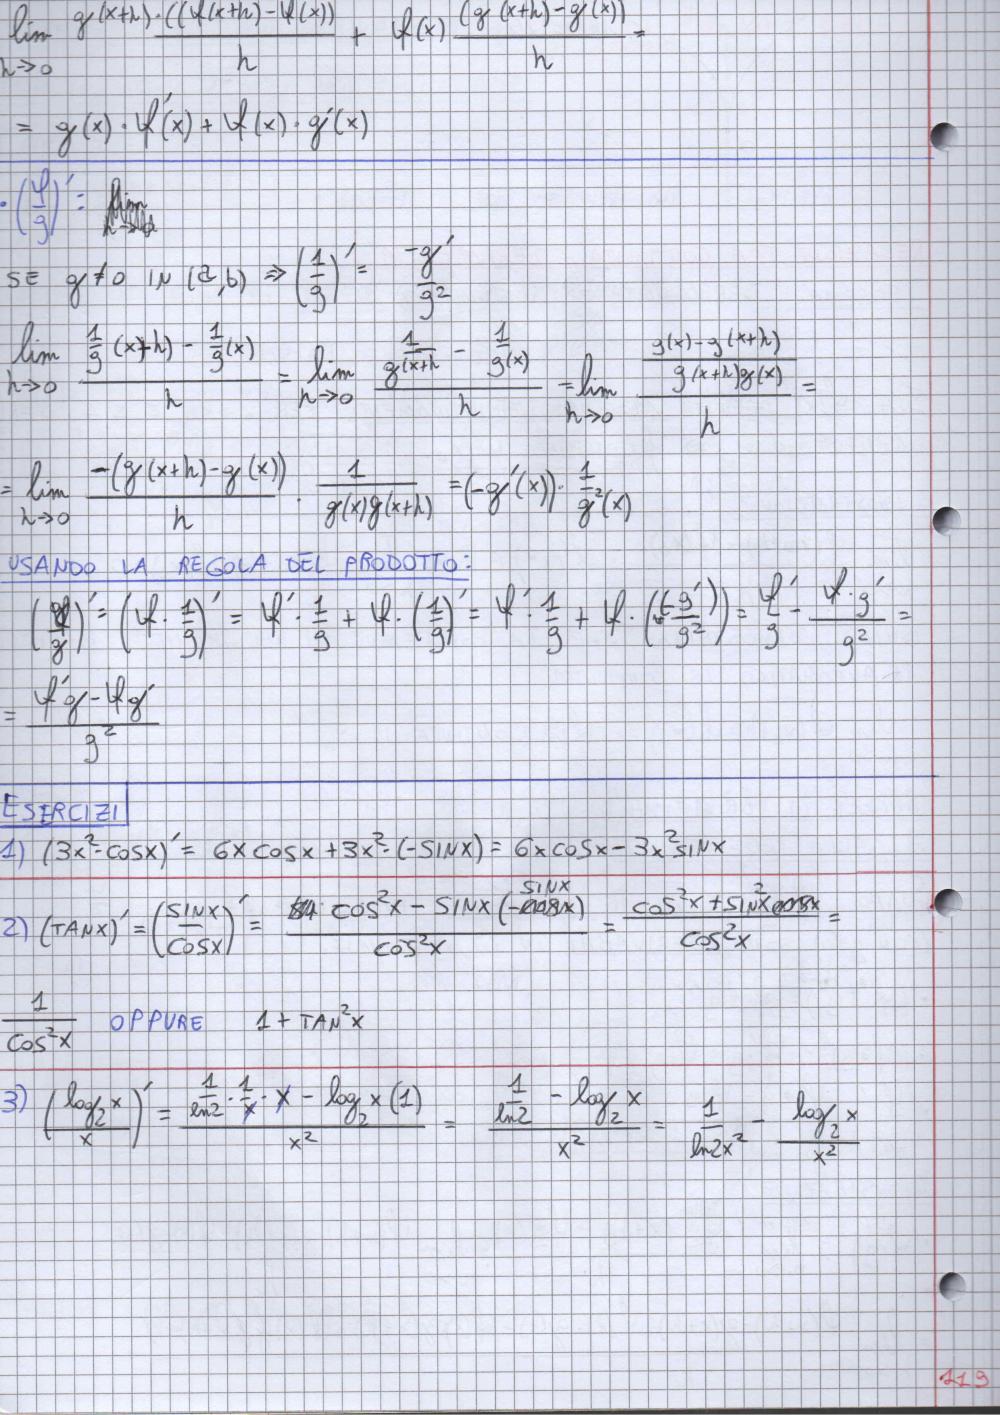 lim h→0 g(x+h)·((f(x+h)-f(x))/h + f(x) (g(x+h)-g(x))/h =
= g(x)·f'(x)+f(x)·g'(x)
·(f/g)':
SE g≠0 IN (a,b) ⇒ (1/g)' = -g'/g²
lim h→0 (1/g (x+h) - 1/g (x))/h = lim h→0 (1/g(x+h - 1/g(x))/h = lim h→0 ((g(x)-g(x+h))/(g(x+h)g(x)))/h =
= lim h→0 -(g(x+h)-g(x))/h · 1/(g(x)g(x+h)) = (-g'(x))· 1/g²(x)
USANDO LA REGOLA DEL PRODOTTO:
(f/g)' = (f·1/g)' = f'·1/g + f·(1/g)' = f'·1/g + f·(-g'/g²) = f'/g - f·g'/g² =
= (f'g-fg')/g²
ESERCIZI
1) (3x²·cosx)' = 6x cosx + 3x²·(-SINX) = 6x cosx - 3x² sinx
2) (TANX)' = (SINX/COSX)' = (cos²x - SINX(-SINX))/cos²x = (cos²x + SIN²X)/cos²x =
1/cos²x OPPURE 1 + TAN²X
3) (log₂x/x)' = (1/ln2 · 1/x · x - log₂x (1))/x² = (1/ln2 - log₂x)/x² = 1/ln2x² - log₂x/x²
119